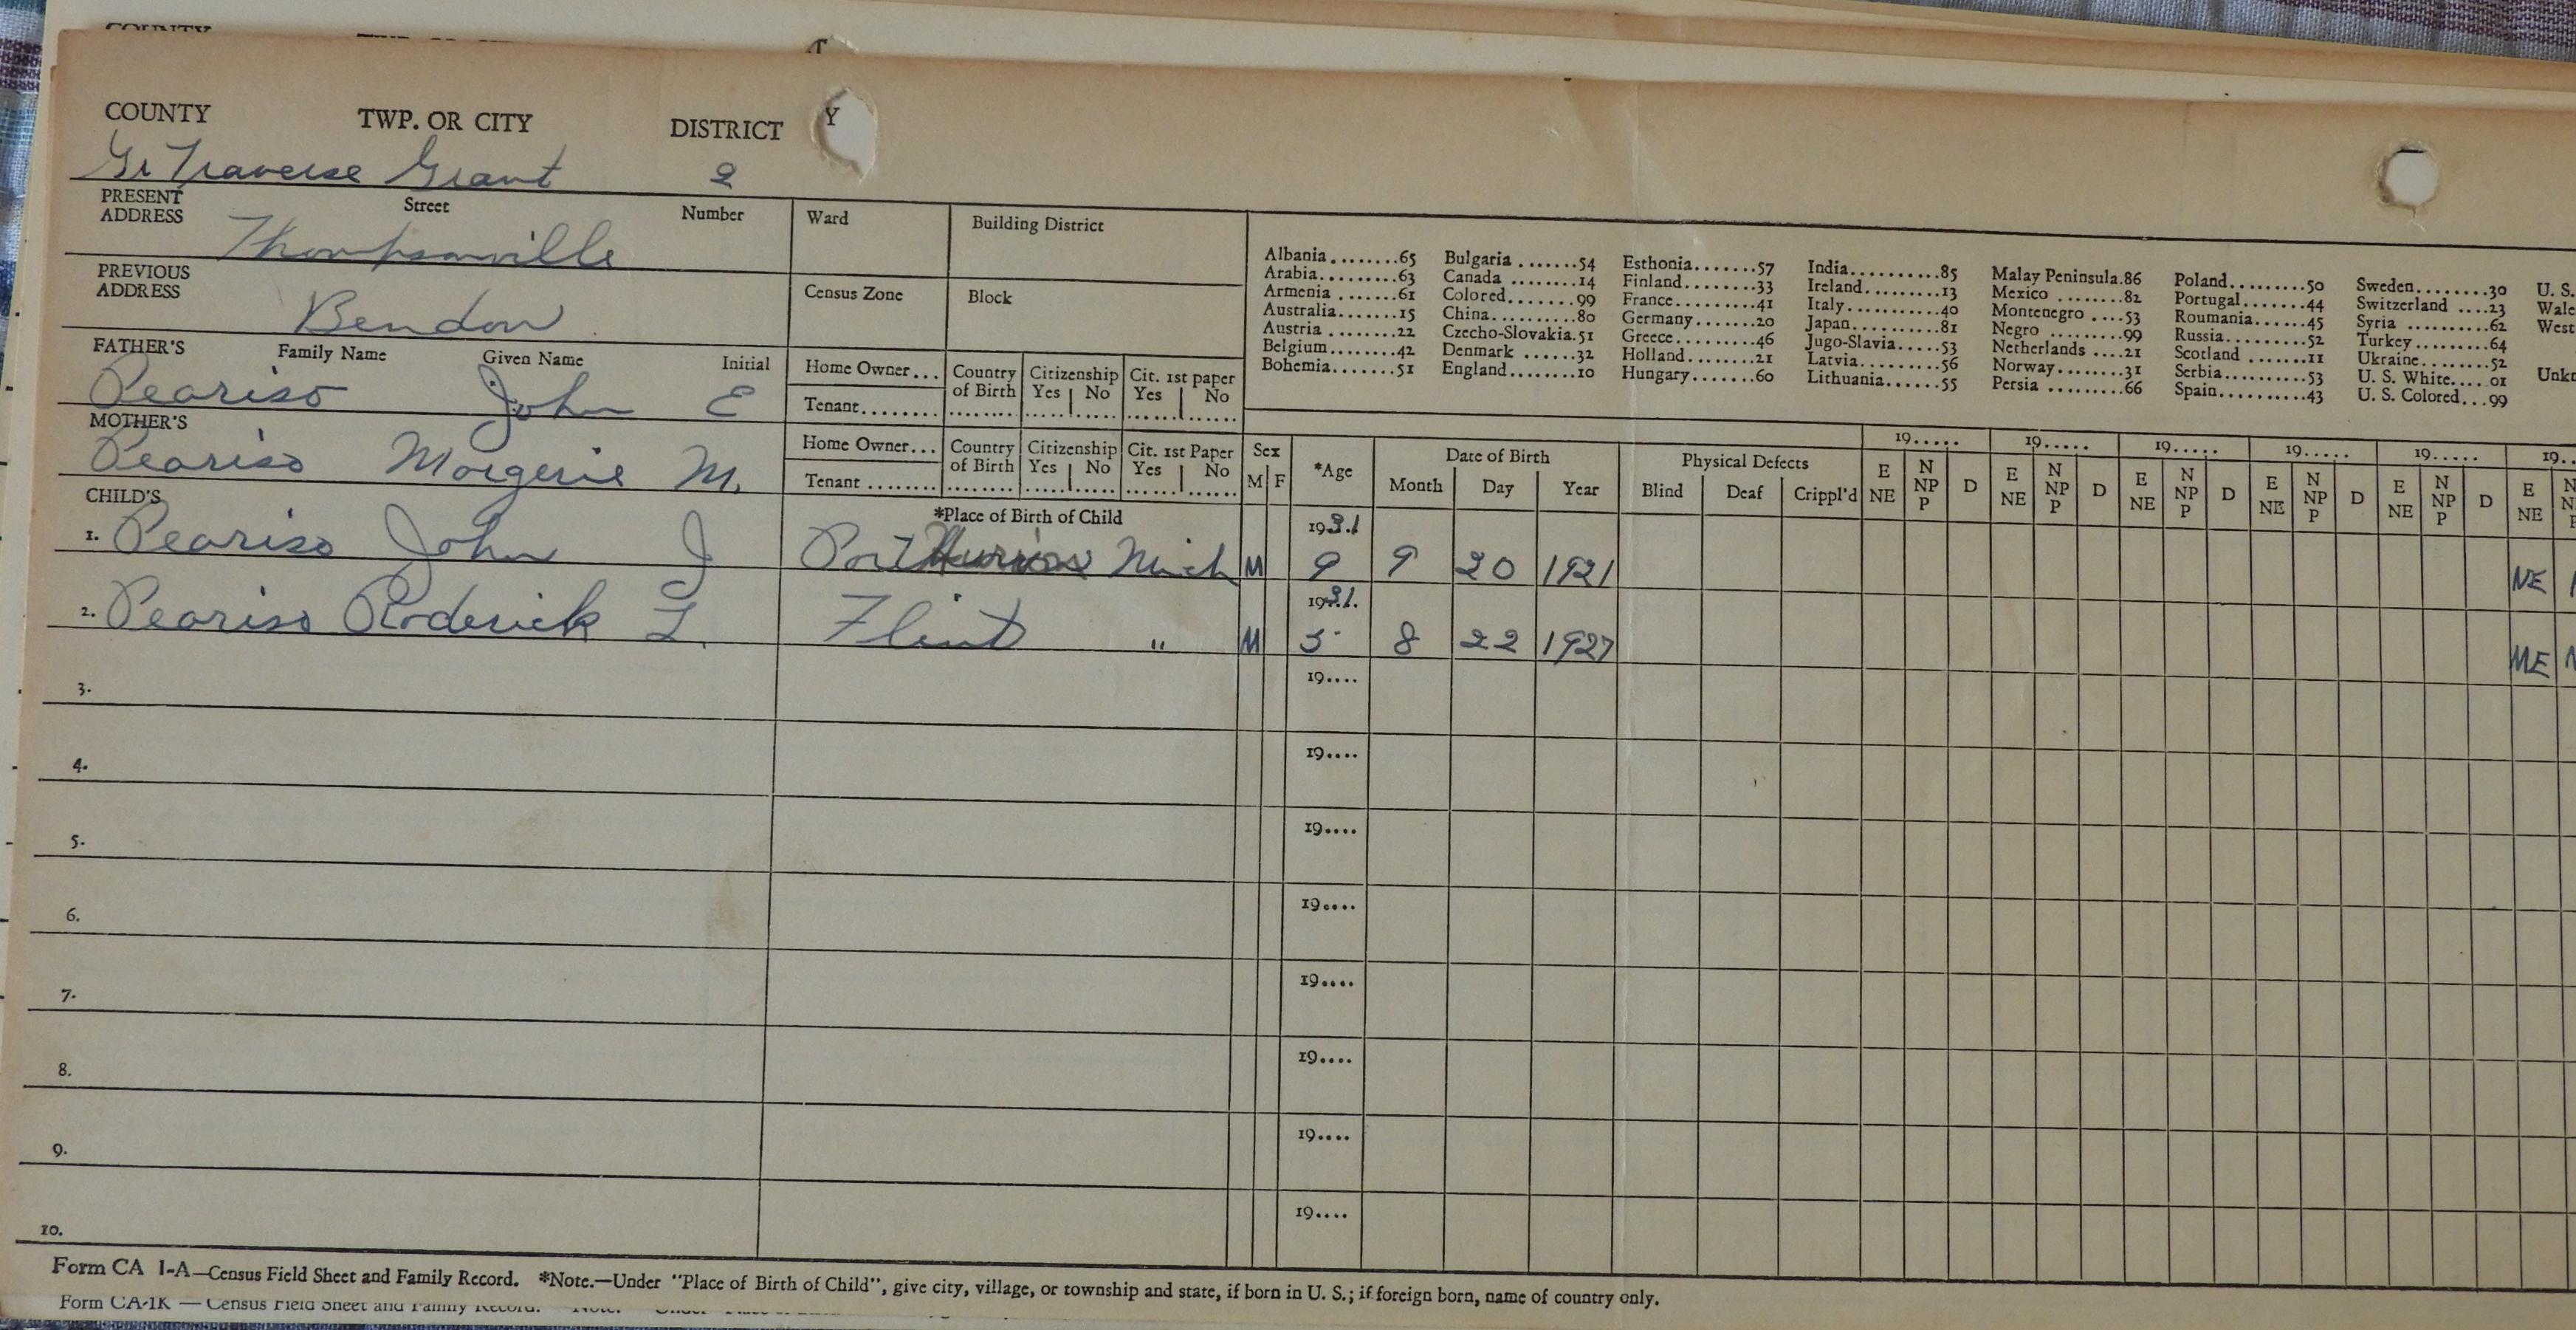 COUNTY TWP. OR CITY DISTRICT Y
Gr Traverse Grant 2
PRESENT ADDRESS Street Number Ward Building District
Thompsonville
PREVIOUS ADDRESS Census Zone Block
Bendon
Albania........65 Bulgaria.......54 Esthonia.......57 India..........85 Malay Peninsula.86 Poland.........50 Sweden........30 U. S.
Arabia.........63 Canada ........14 Finland........33 Ireland........13 Mexico ........82 Portugal.......44 Switzerland ....23 Wale
Armenia .......61 Colored........99 France.........41 Italy..........40 Montenegro ....53 Roumania......45 Syria .........62 West
Australia......15 China..........80 Germany.......20 Japan..........81 Negro .........99 Russia.........52 Turkey........64
Austria .......22 Czecho-Slovakia.51 Greece.........46 Jugo-Slavia.....53 Netherlands ....21 Scotland .......11 Ukraine........52
Belgium.......42 Denmark ......32 Holland........21 Latvia.........56 Norway........31 Serbia.........53 U. S. White....01 Unkn
Bohemia.......51 England........10 Hungary.......60 Lithuania......55 Persia .........66 Spain..........43 U. S. Colored...99
FATHER'S Family Name Given Name Initial Home Owner... Country of Birth Citizenship Yes No Cit. 1st paper Yes No
Peariso John E Tenant........
MOTHER'S Home Owner... Country of Birth Citizenship Yes No Cit. 1st Paper Yes No
Peariso Morgerie M. Tenant ........
Sex M F *Age Date of Birth Month Day Year Physical Defects Blind Deaf Crippl'd
19..... 19..... 19..... 19..... 19..... 19..
E NE N NP P D E NE N NP P D E NE N NP P D E NE N NP P D E NE N NP P D E NE
CHILD'S *Place of Birth of Child
1. Peariso John J Port Huron Mich M 1931 9 9 20 1921 NE
2. Peariso Roderick L. Flint " M 1931. 5 8 22 1927 NE
3. 19....
4. 19....
5. 19....
6. 19....
7. 19....
8. 19....
9. 19....
10. 19....
Form CA 1-A—Census Field Sheet and Family Record. *Note.—Under "Place of Birth of Child", give city, village, or township and state, if born in U. S.; if foreign born, name of country only.
Form CA-1K — Census Field Sheet and Family Record.